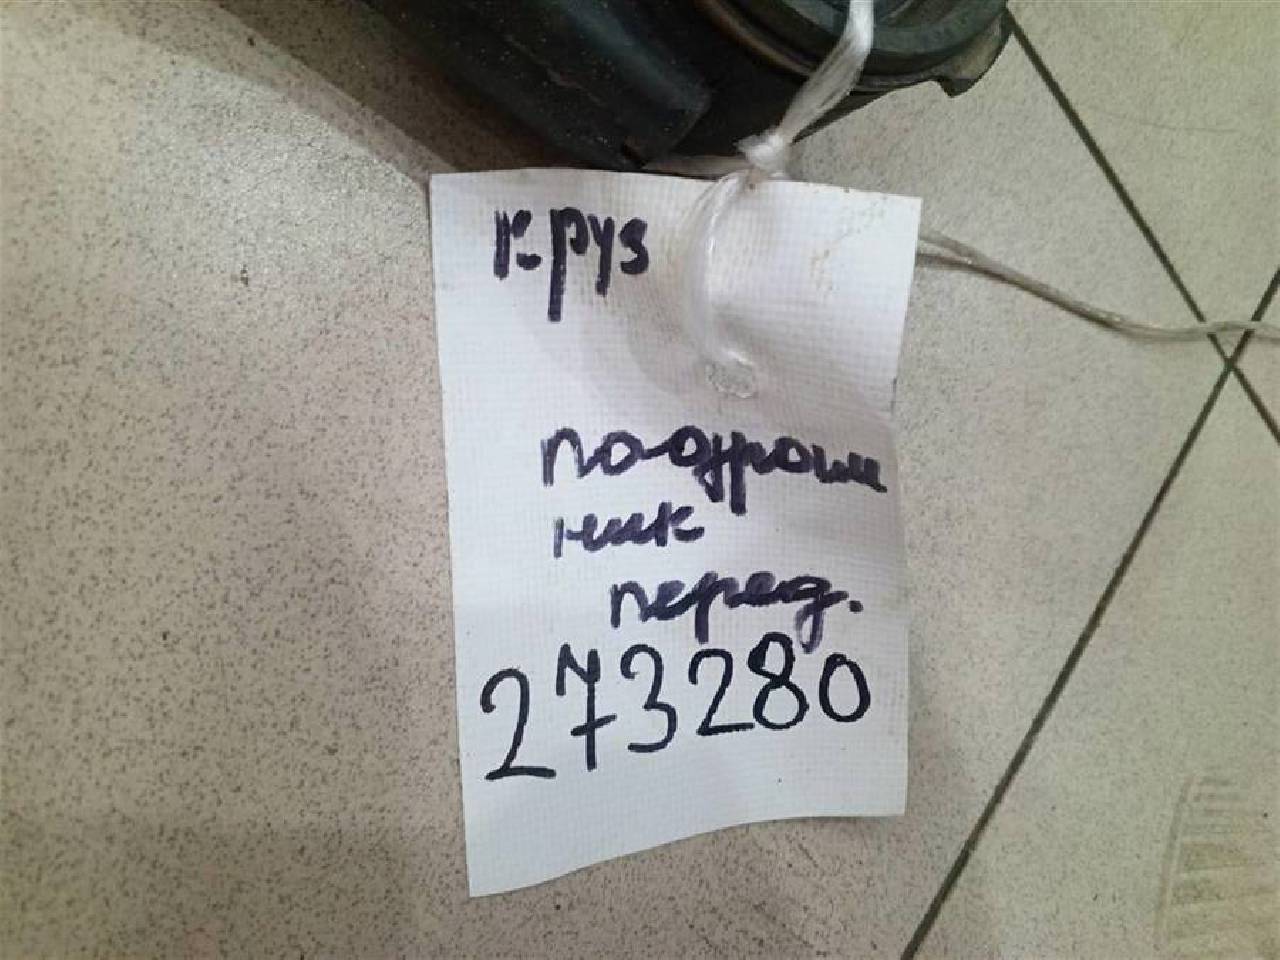 круз
подкрыл
ник
перед.
273280